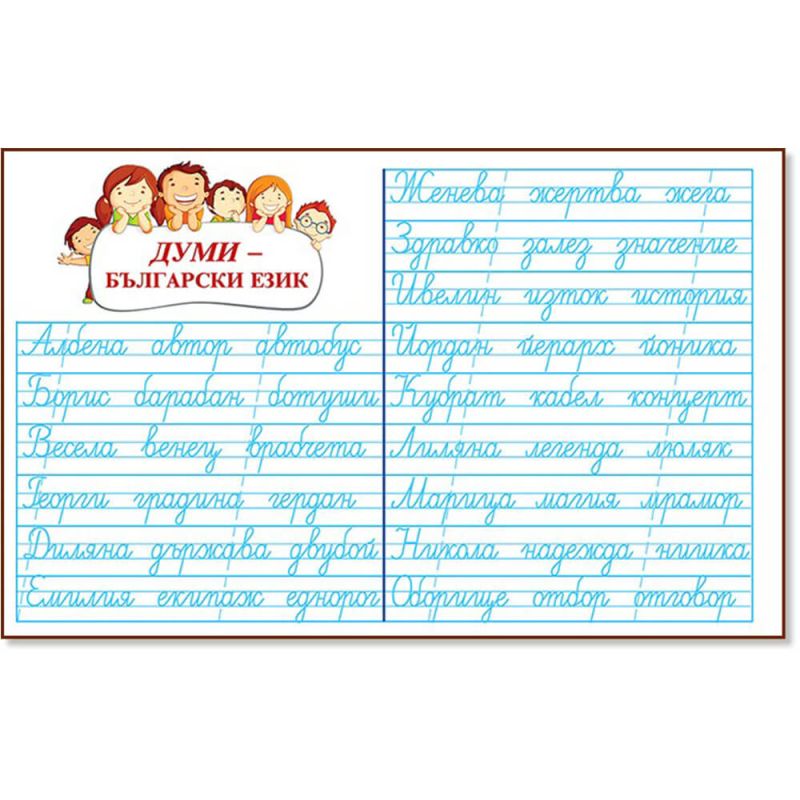 ДУМИ –
БЪЛГАРСКИ ЕЗИК
Албена автор автобус
Борис барабан ботуши
Весела венец врабчета
Георги градина гердан
Диляна държава двубой
Емилия екипаж еднорог
Женева жертва жега
Здравко залез значение
Ивелин изток история
Йордан йерарх йоника
Кубрат кабел концерт
Лиляна легенда люляк
Марица магия мрамор
Никола надежда нишка
Оборище отбор отговор